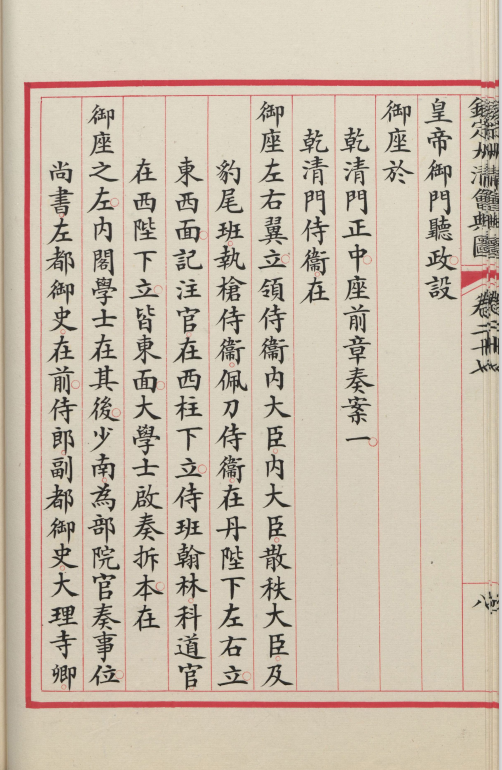 欽定大清會典圖 卷二十七
皇帝御門聽政設
御座於
乾清門正中座前章奏案一
乾清門侍衞在
御座左右翼立領侍衞內大臣內大臣散秩大臣及
豹尾班執槍侍衞佩刀侍衞在丹陛下左右立
東西面記注官在西柱下立侍班翰林科道官
在西陛下立皆東面大學士啟奏折本在
御座之左內閣學士在其後少南為部院官奏事位
尚書左都御史在前侍郎副都御史大理寺卿
八